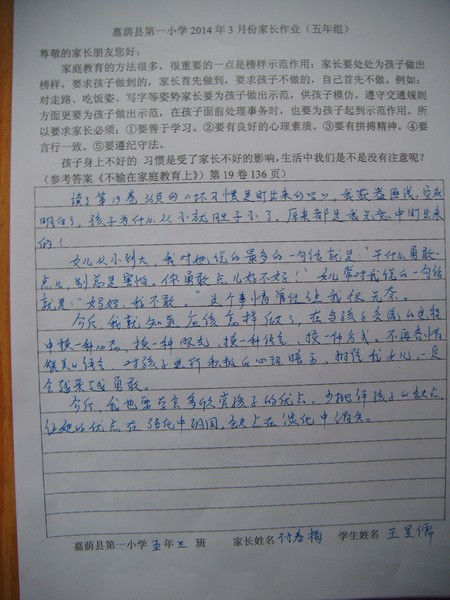 嘉荫县第一小学2014年3月份家长作业（五年组）
尊敬的家长朋友您好：
家庭教育的方法很多，很重要的一点是榜样示范作用：家长要处处为孩子做出
榜样，要求孩子做到的，家长首先做到，要求孩子不做的，自己首先不做。例如：
对走路、吃饭姿、写字等姿势家长要为孩子做出示范，供孩子模仿。遵守交通规则
方面更要为孩子做出示范，在孩子面前处理事务时，也要为孩子起到示范作用。所
以要求家长必须：①要善于学习。②要有良好的心理素质。③要有拼搏精神。④要
言行一致。⑤要遵纪守法。
孩子身上不好的 习惯是受了家长不好的影响,生活中我们是不是没有注意呢？
（参考答案《不输在家庭教育上》）第19卷136页）
读了第19卷 36页的《坏习惯是盯出来的》，我
明白了，孩子为什么从小就胆子小了，原来都是我无意中盯出来
的！
女儿从小到大，我对她说的最多的一句话就是："干什么勇敢
点儿，别总是害怕。你勇敢点儿好不好！"女儿常对我说的一句话
就是："妈妈，我不敢。"这个事情常让我很无奈。
今后，我就知道应该怎样做了，在与孩子交流的过程
中换一种心态，换一种眼光，换一种语言，换一种方式。不再吝惜
赞美的语言，对孩子进行积极的心理暗示，相信我女儿一定
会越来越勇敢。
今后，我也要学会多欣赏孩子的优点，少批评孩子的缺点，
让她的优点在强化中巩固，缺点在淡化中消失。
嘉荫县第一小学 五年三 班 家长姓名 付春梅 学生姓名 王昱儒